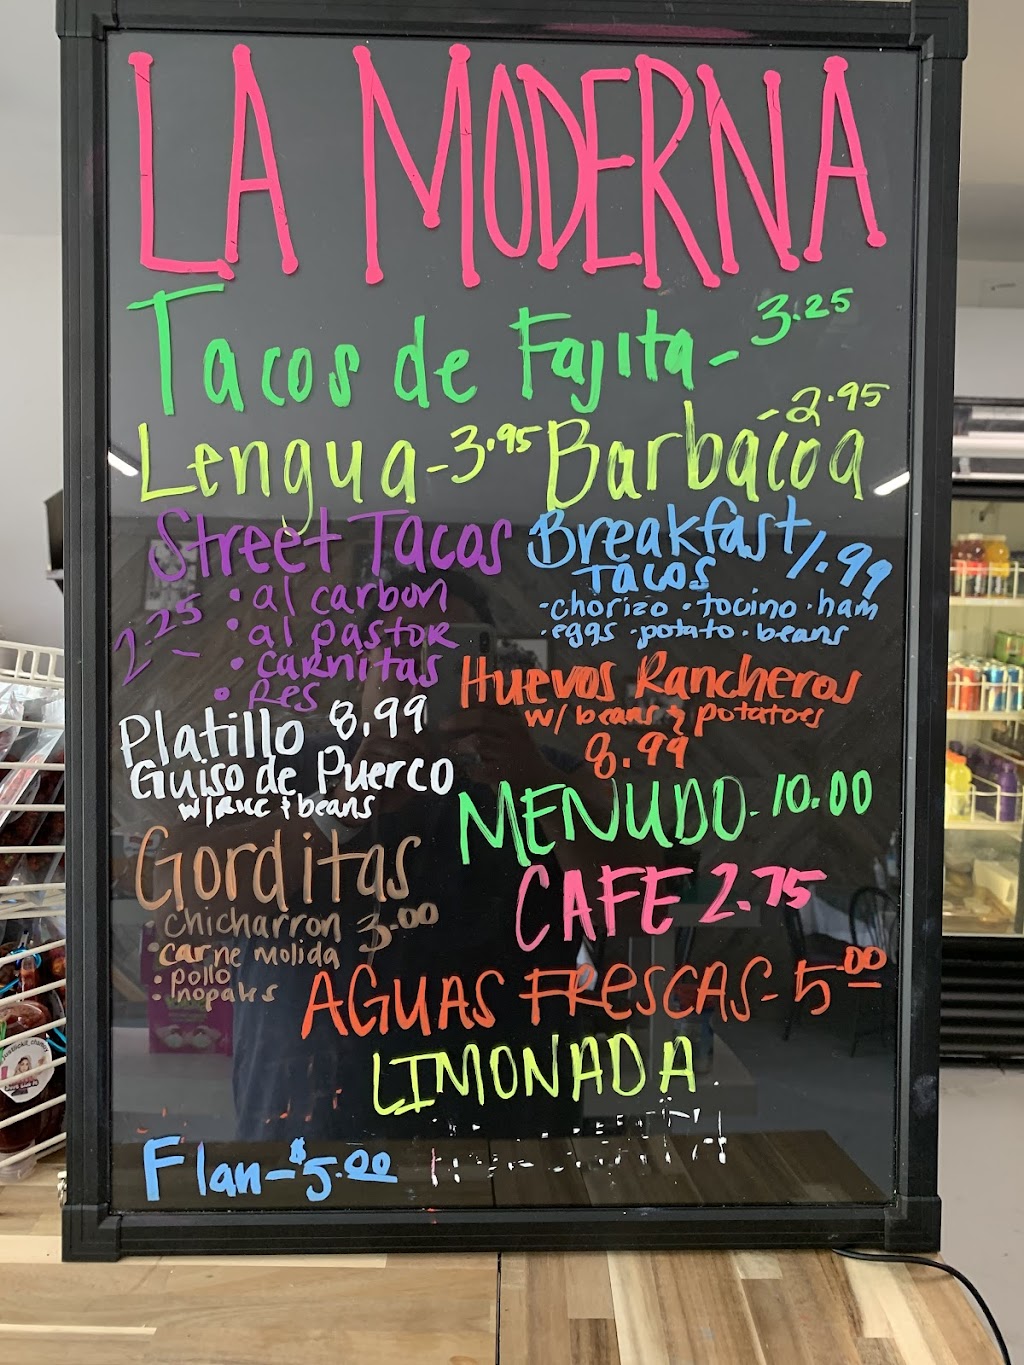 LA MODERNA
Tacos de Fajita - 3.25
Lengua - 3.95 Barbacoa - 2.95
Street Tacos
2.25
• al carbon
• al pastor
• carnitas
• Res
Breakfast 1.99
Tacos
- chorizo • tocino • ham
• eggs • potato • beans
Huevos Rancheros
w/ beans & potatoes
8.99
Platillo 8.99
Guiso de Puerco
w/ rice + beans
MENUDO - 10.00
Gorditas
• chicharron 3.00
• carne molida
• pollo
• nopales
CAFE 2.75
AGUAS FRESCAS - 5.00
LIMONADA
Flan - $5.00